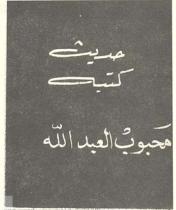 حديث
كتبه
محبوب العبد الله